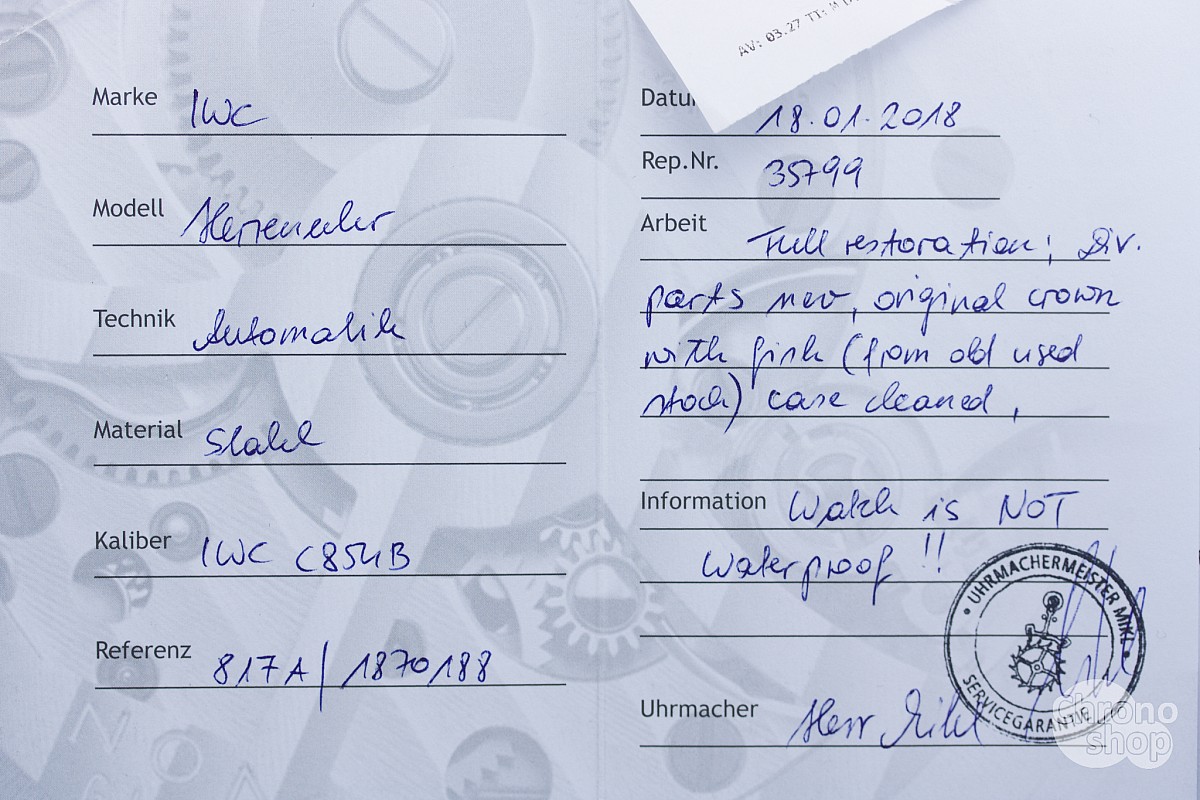 Marke IWC
Modell Herrenuhr
Technik Automatik
Material Stahl
Kaliber IWC C854B
Referenz 817A/1870188
AV: 03.27 TT:
Datu 18.01.2018
Rep.Nr. 35799
Arbeit Full restoration; Div.
parts new, original crown
with fish (from old used
stock) case cleaned,
Information Watch is NOT
waterproof!!
UHRMACHERMEISTER MIKL
SERVICEGARANTIE
Uhrmacher Herr Mikl
chrono
shop